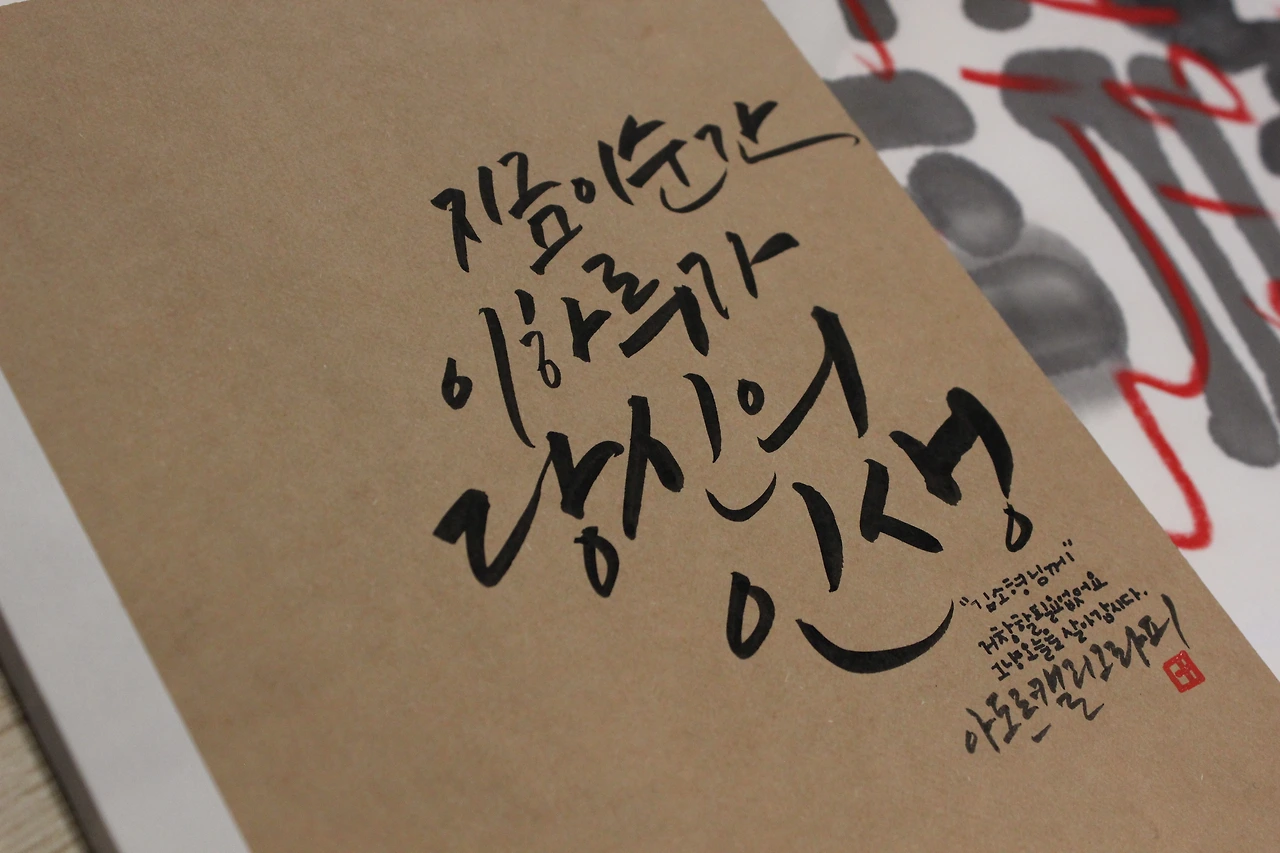 지금 이 순간
이 하루가
당신의
인생
"김소형님께"
거창할 필요 없어요
그냥 오늘을 살아갑시다.
아도르캘리그라피